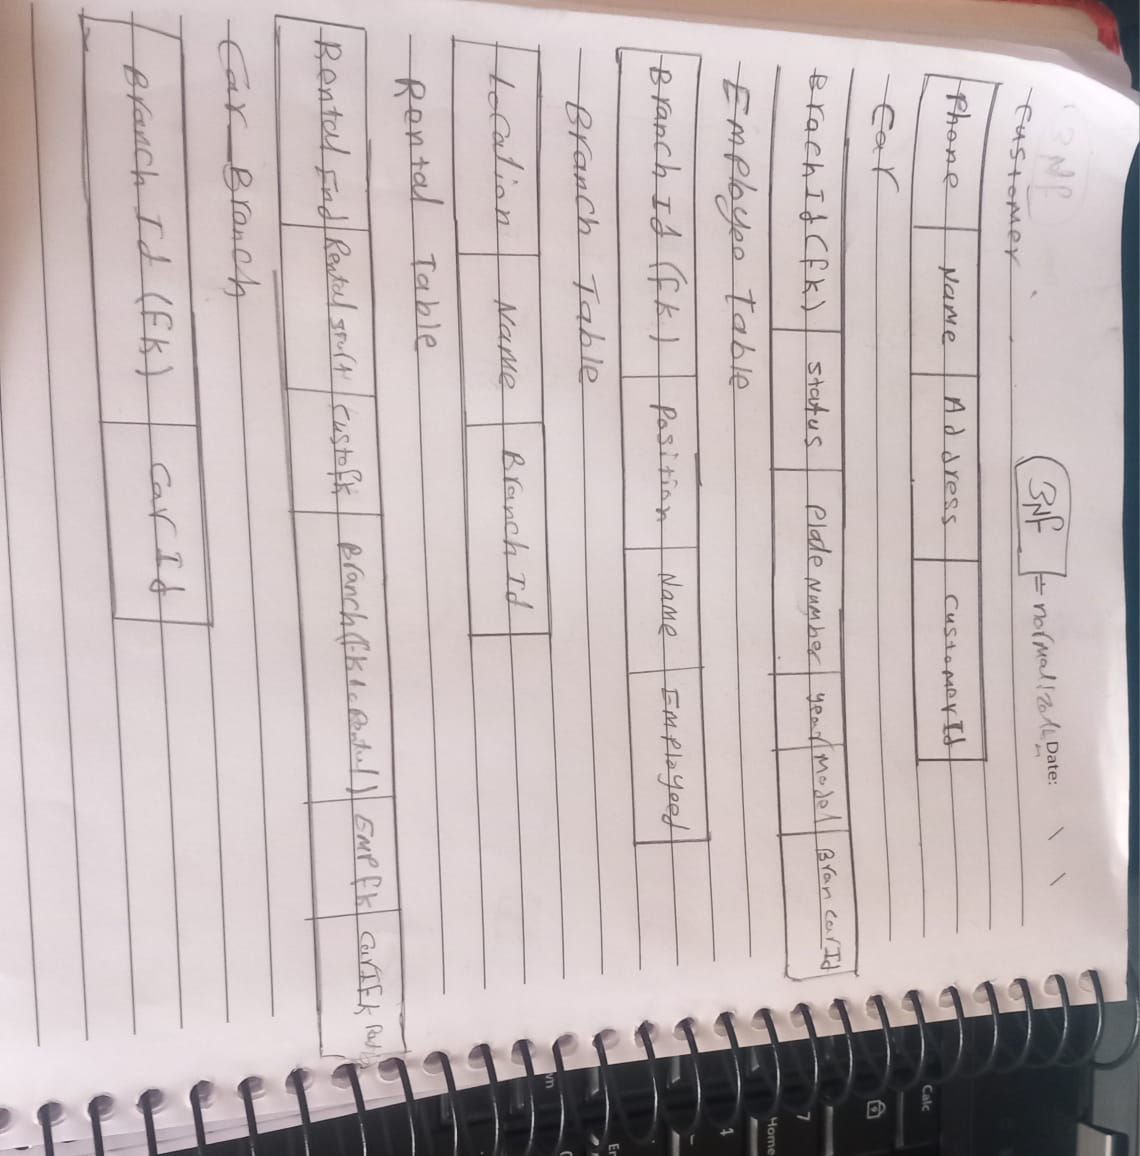 3NF
3NF = normalization Date:
Customer
Phone Name Address CustomerId
Car
BrachId (fk) status Plate Number year Model Bran CarId
Employee Table
Branch Id (fk) Position Name Employeed
Branch Table
Location Name Branch Id
Rental Table
Rental End Rental start Custofk Branch (fk Emp fk
Car_Branch
Branch Id (fk) Car Id
Calc
7 Home
1